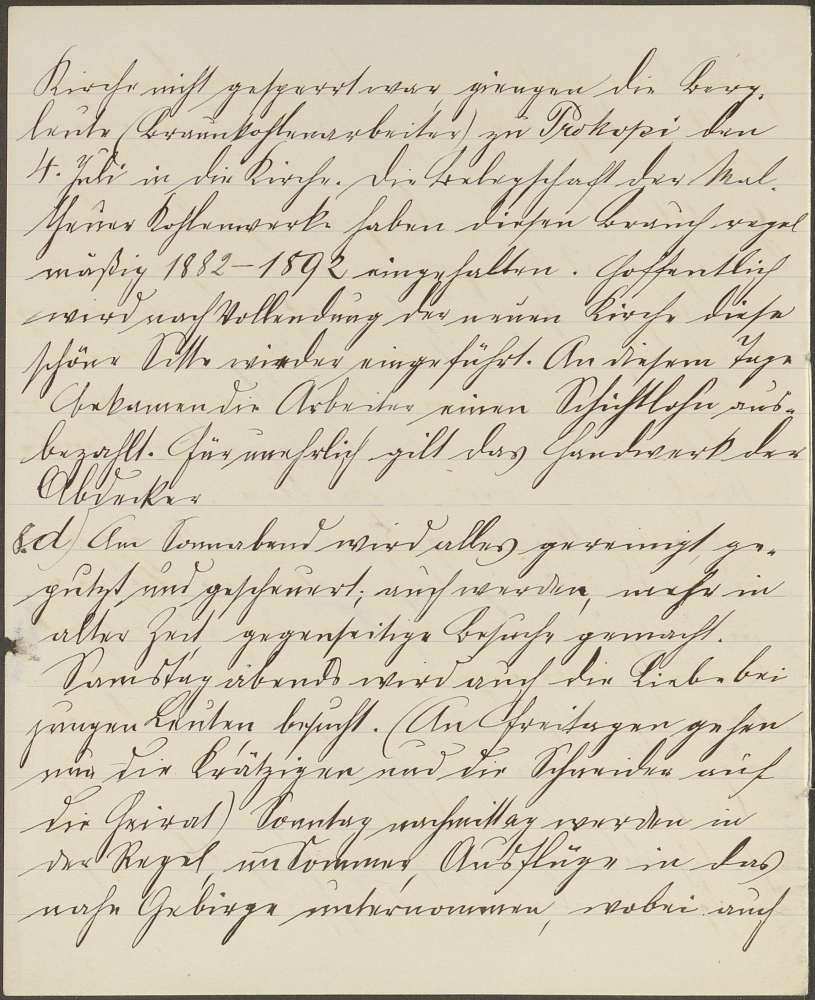 Kirche nicht gesperrt war, giengen die Berg-
leute (Braunkohlenarbeiter) zu Prokopi den
4. Juli in die Kirche. Die Belegschaft der Mal-
theuer Kohlenwerke haben diesen Brauch regel
mäßig 1882–1892 eingehalten. Hoffentlich
wird nach Vollendung der neuen Kirche diese
schöne Sitte wieder eingeführt. An diesem Tage
bekamen die Arbeiter einen Schichtlohn aus-
bezahlt. Für unehrlich gilt das Handwerk der
Abdecker
8. d) Am Sonnabend wird alles gereinigt, ge-
putzt und gescheuert; auch werden, mehr in
alter Zeit, gegenseitige Besuche gemacht.
Samstag abends wird auch die Liebe bei
jungen Leuten besucht. (An Freitagen gehen
nur die Krätzigen und die Schneider auf
die Heirat) Sonntag nachmittag werden in
der Regel, im Sommer, Ausflüge in das
nahe Gebirge unternommen, wobei auch